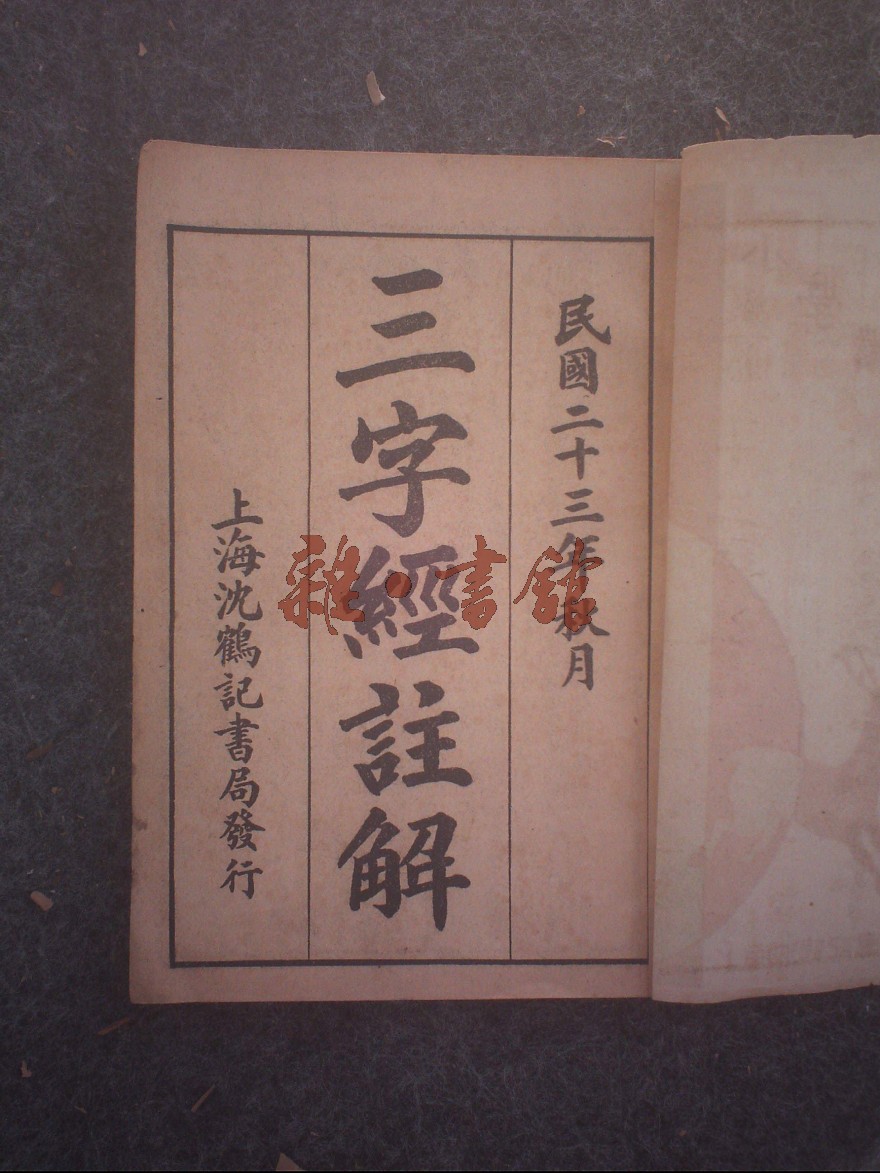 民國二十三年秋月
三字經註解
上海沈鶴記書局發行
雜·書館